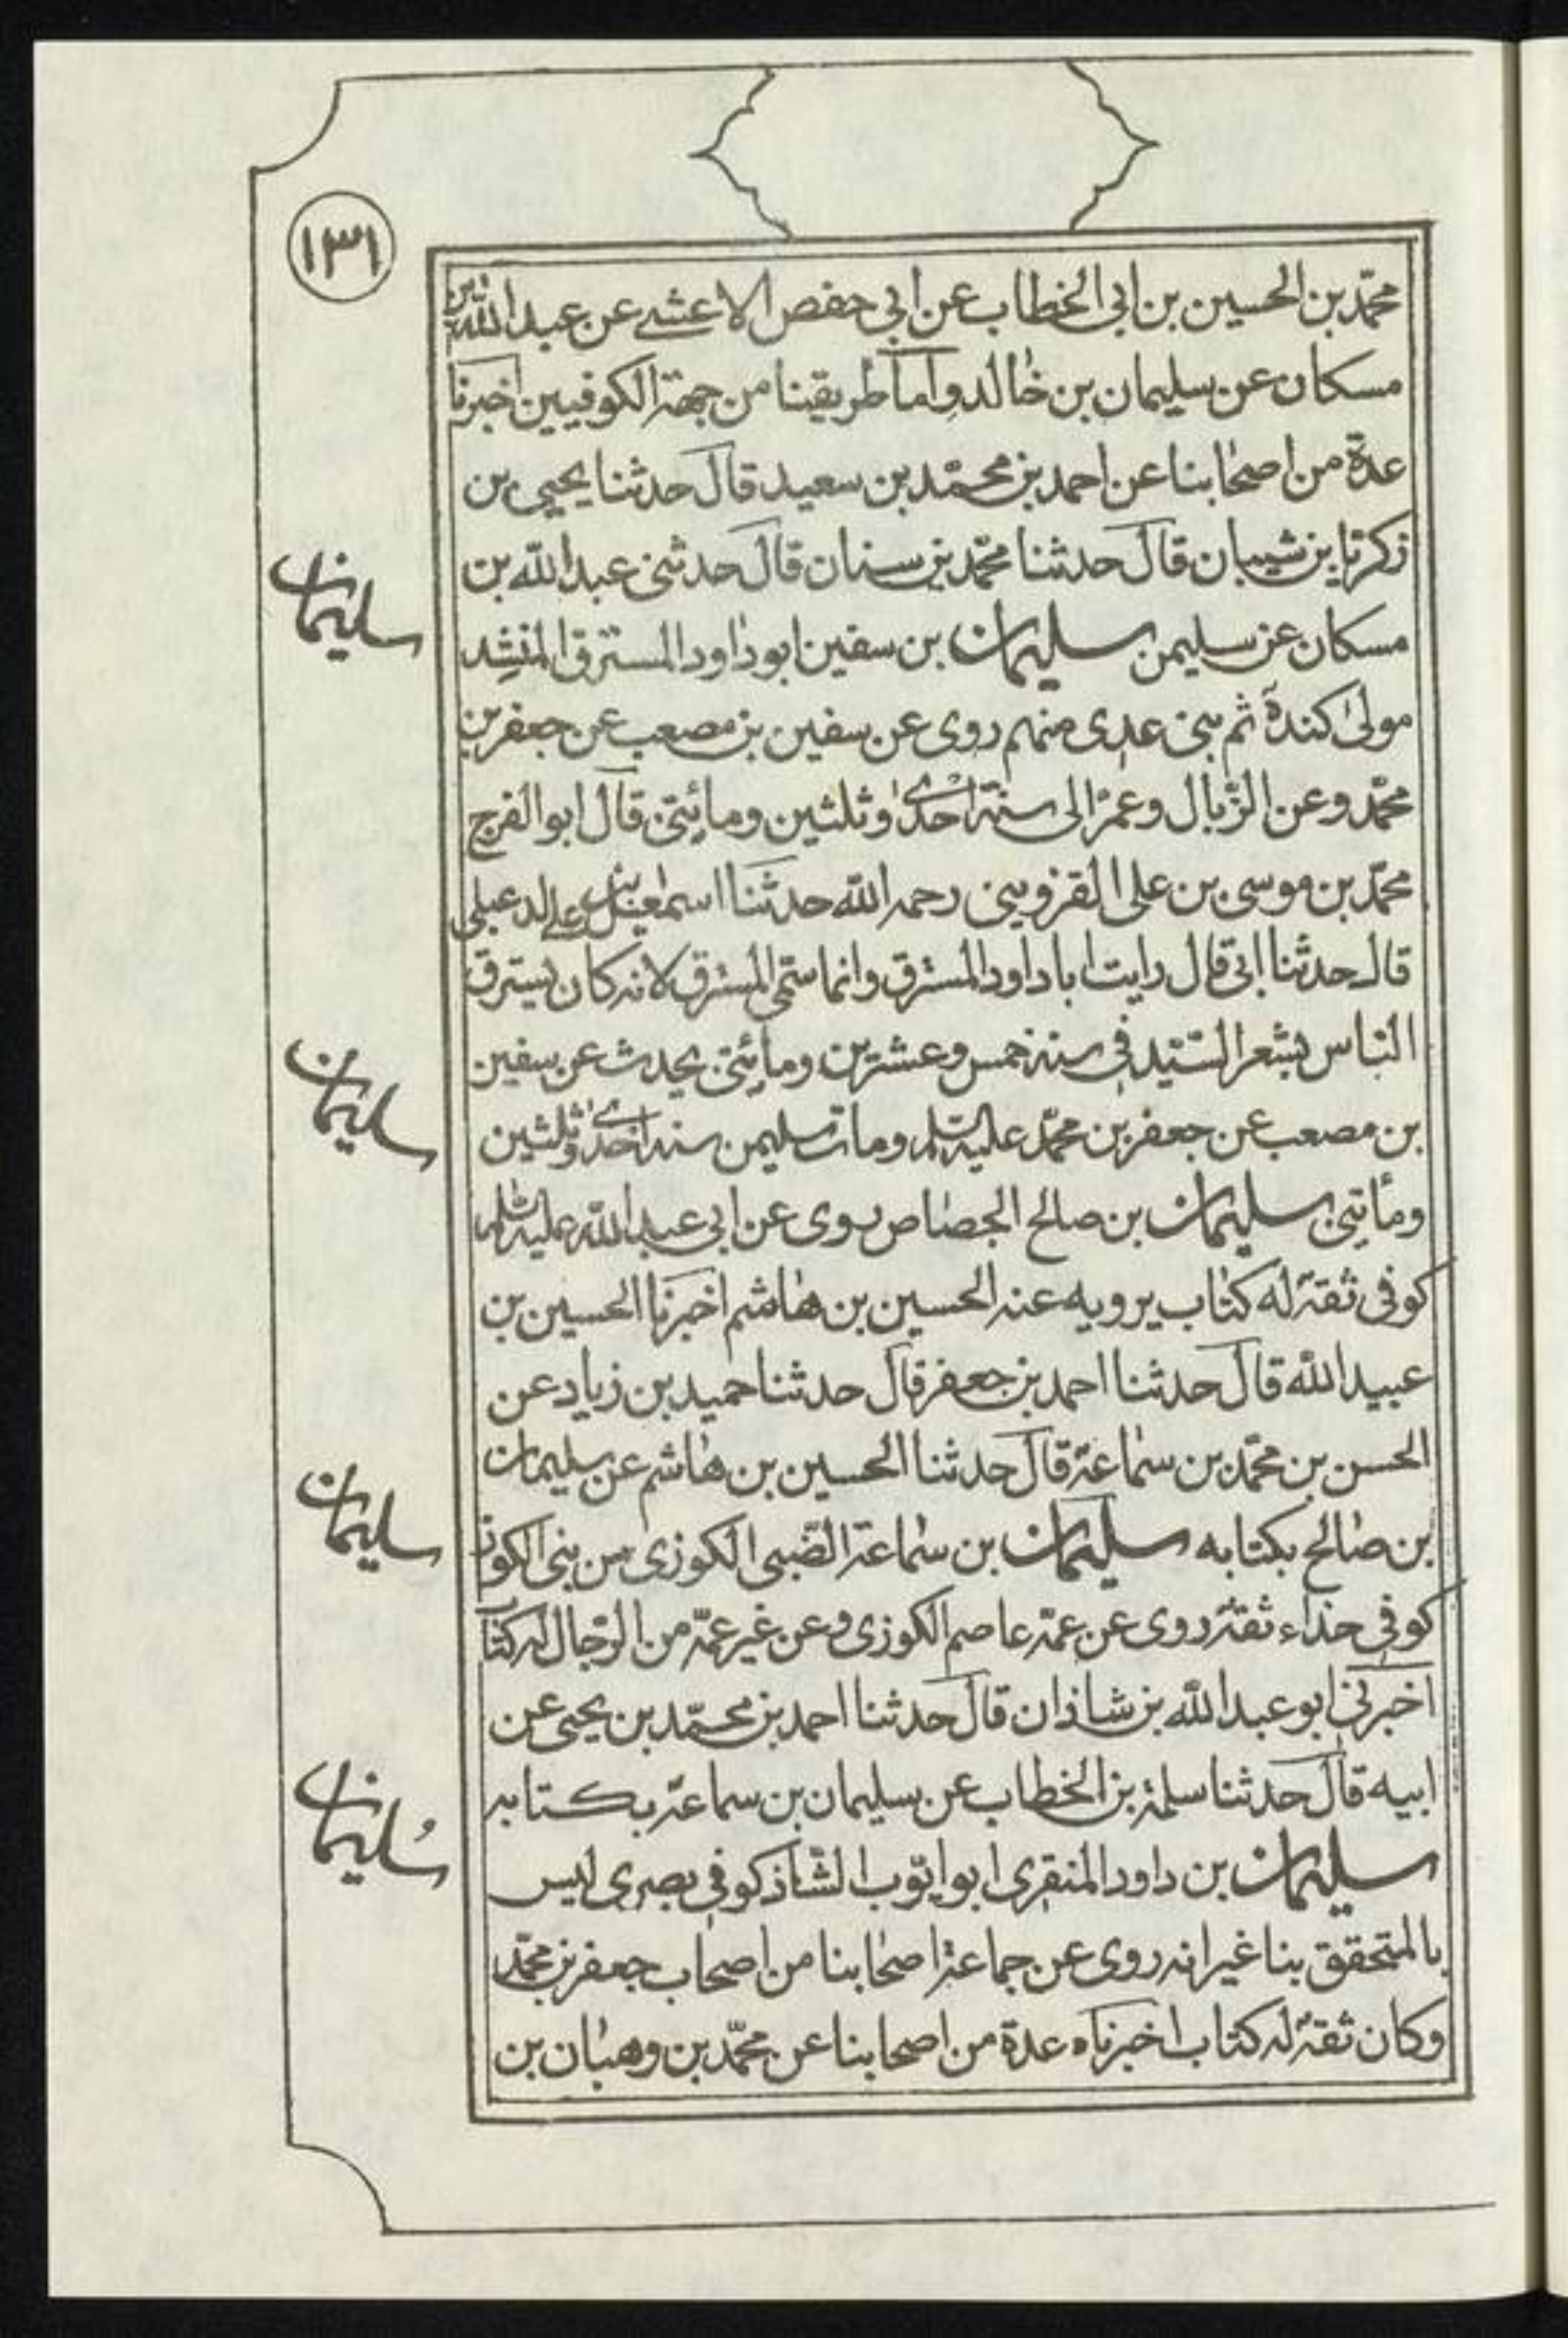 ١٣١
محمّد بن الحسين بن ابى الخطاب عن ابى حفص الاعشى عن عبد الله بن
مسكان عن سليمان بن خالد واما طريقنا من جهة الكوفيين اخبرنا
عدة من اصحابنا عن احمد بن محمّد بن سعيد قال حدثنا يحيى بن
زكريا بن شيبان قال حدثنا محمّد بن سنان قال حدثنى عبد الله بن
مسكان عن سليمن سليمان بن سفين ابو داود المسترق المنشد
سليمان
مولى كندة ثم بنى عدى منهم روى عن سفين بن مصعب عن جعفر بن
محمّد وعن الزبال وعمر الى سنة احدى وثلثين ومائتى قال ابو الفرج
محمّد بن موسى بن على القزوينى رحمه الله حدثنا اسمعيل بن على الدعبلى
قال حدثنا ابى قال رايت ابا داود المسترق وانما سمّى المسترق لانه كان يسترق
الناس بشعر السيّد فى سنة خمس وعشرين ومائتى يحدث عن سفين
بن مصعب عن جعفر بن محمّد عليه السلم ومات سليمن سنة احدى وثلثين
ومأتين سليمان بن صالح الجصاص روى عن ابى عبد الله عليه السلم
سليمان
كوفى ثقة له كتاب يرويه عنه الحسين بن هاشم اخبرنا الحسين بن
عبيد الله قال حدثنا احمد بن جعفر قال حدثنا حميد بن زياد عن
الحسن بن محمّد بن سماعة قال حدثنا الحسين بن هاشم عن سليمان
بن صالح بكتابه سليمان بن سماعة الضّبى الكوزى من بنى الكوز
سليمان
كوفى حذاء ثقة روى عن عمّه عاصم الكوزى وعن غير عمّه من الرّجال له كتاب
اخبرنى ابو عبد الله بن شاذان قال حدثنا احمد بن محمّد بن يحيى عن
ابيه قال حدثنا سلمة بن الخطاب عن سليمان بن سماعة بكتابه
سليمان بن داود المنقرى ابو ايّوب الشّاذكوفى بصرى ليس
سُليمان
بالمتحقق بنا غير انه روى عن جماعة اصحابنا من اصحاب جعفر بن محمّد
وكان ثقة له كتاب اخبرناه عدة من اصحابنا عن محمّد بن وهبان بن